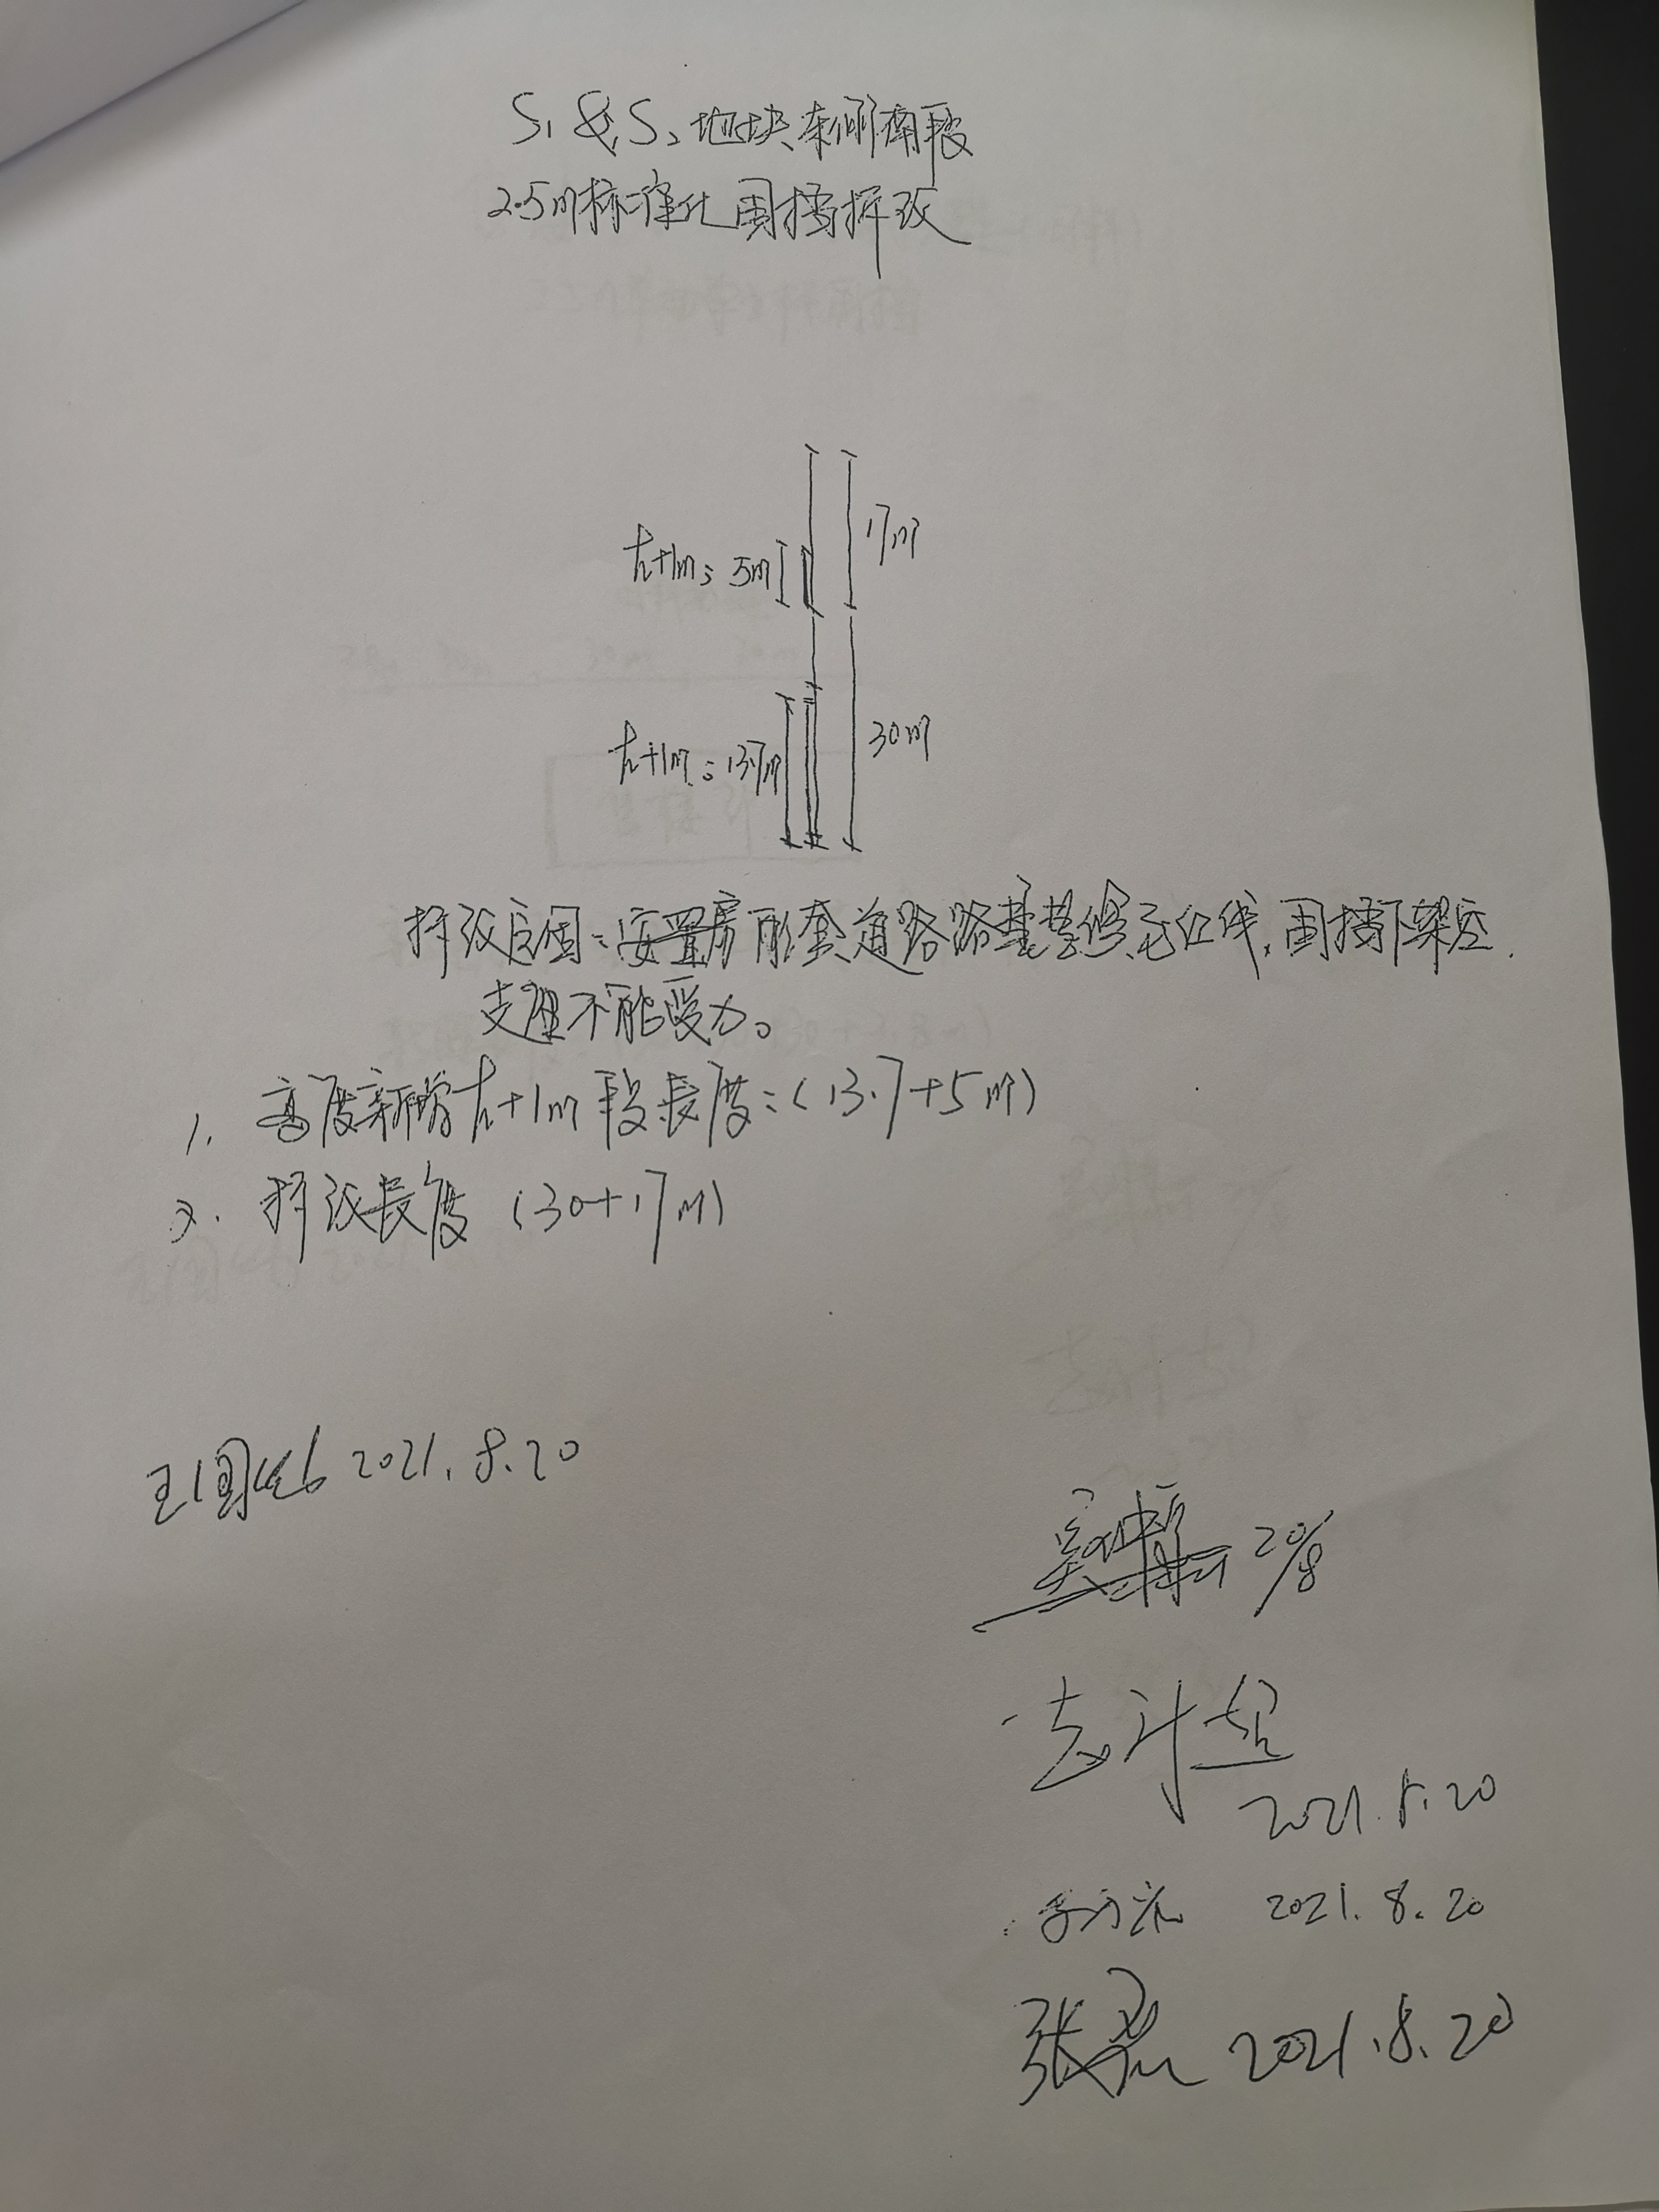 S₁ & S₂ 地块东侧南段
2.5m标准化围挡拆改
17m
h+1m: 5m
30m
h+1m: 13.7m
拆改原因：安置房配套道路路基整修至红线，围挡下架空，
支座不能受力。
1. 高度新增h+1m段长度：(13.7+5m)
2. 拆改长度 (30+17m)
2021.8.20
20/8
2021.8.20
2021.8.20
张 2021.8.20